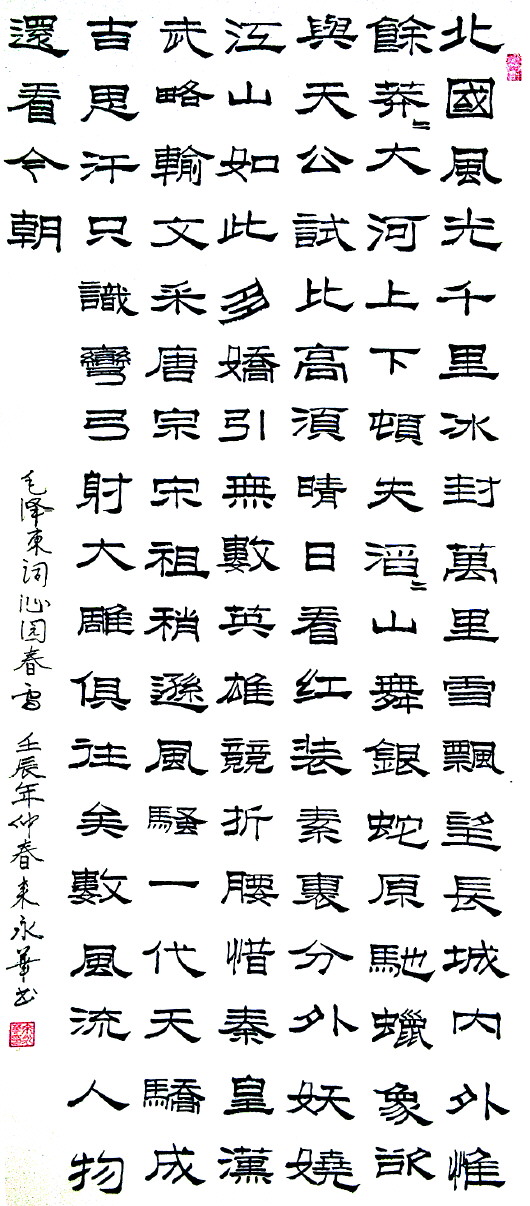 北國風光千里冰封萬里雪飄望長城內外惟
餘莽〻大河上下頓失滔〻山舞銀蛇原馳蠟象欲
與天公試比高須晴日看红装素裹分外妖嬈
江山如此多嬌引無數英雄競折腰惜秦皇漢
武略輸文采唐宗宋祖稍遜風騷一代天驕成
吉思汗只識彎弓射大雕俱往矣數風流人物
還看今朝
毛泽東词沁园春雪 壬辰年仲春来永華书